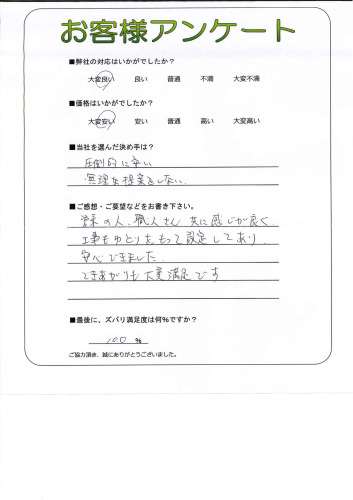 お客様アンケート
■弊社の対応はいかがでしたか？
大変良い 良い 普通 不満 大変不満
■価格はいかがでしたか？
大変安い 安い 普通 高い 大変高い
■当社を選んだ決め手は？
圧倒的に安い
無理な提案をしない．
■ご感想・ご要望などをお書き下さい。
営業の人、職人さん 共に感じが良く
工事もゆとりをもって設定しており
安心できました
できあがりも大変満足です
■最後に、ズバリ満足度は何％ですか？
100 ％
ご協力頂き、誠にありがとうございました。